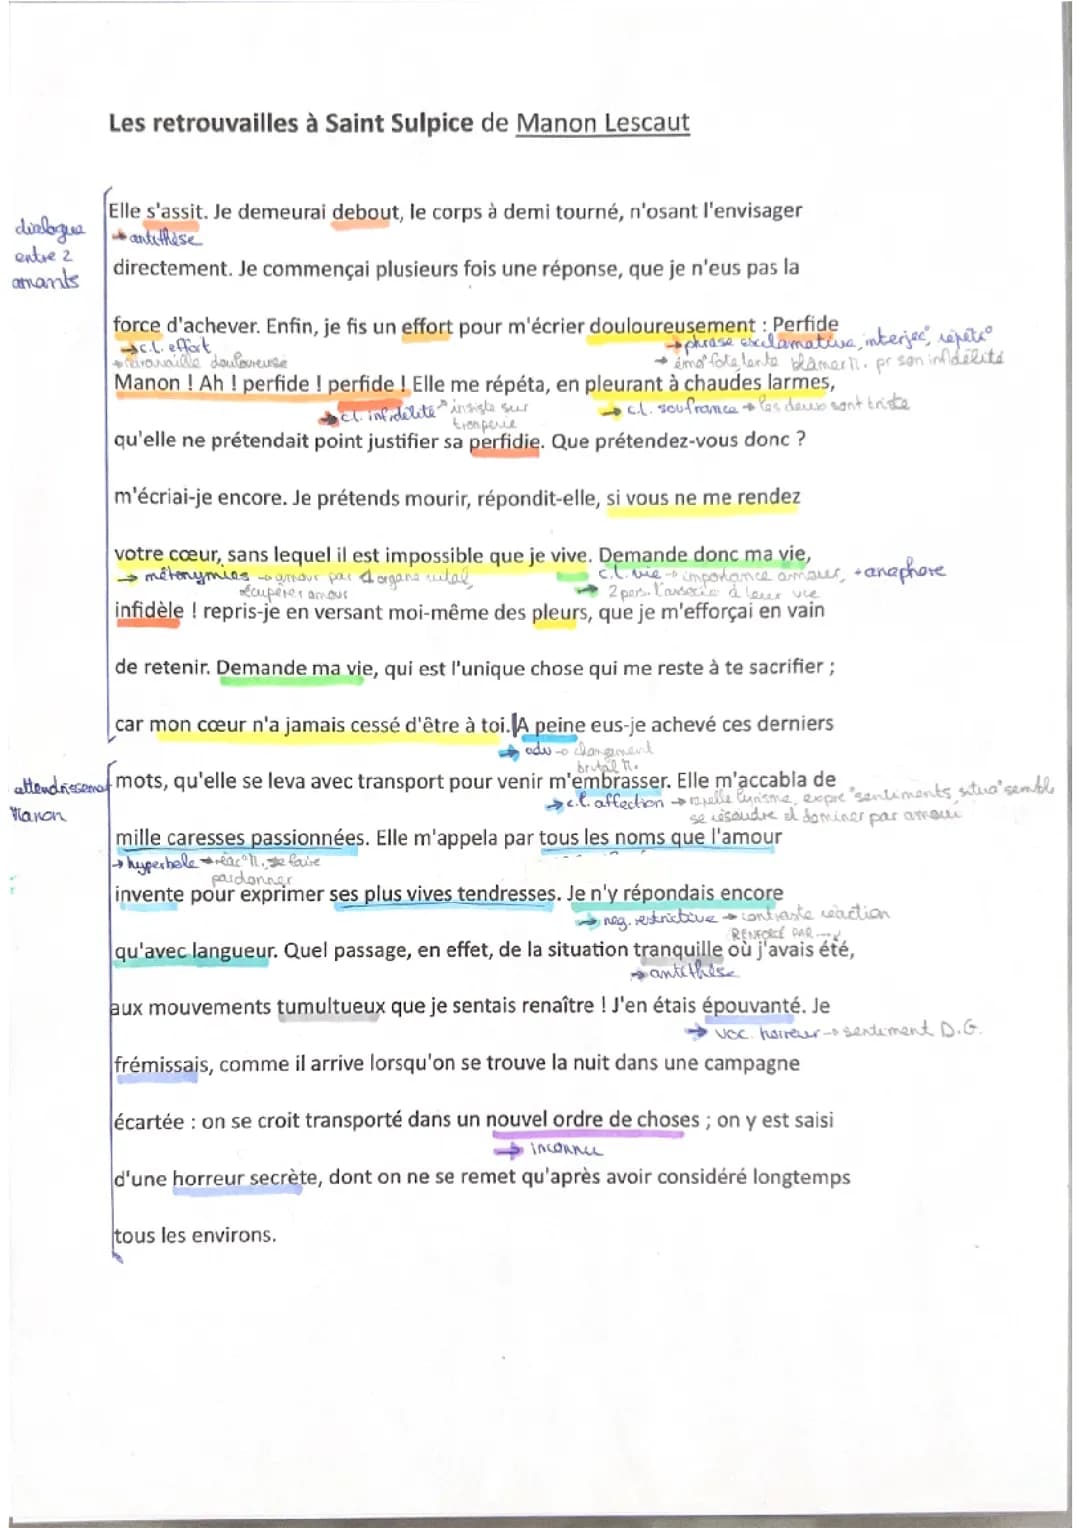 Les retrouvailles à Saint Sulpice de Manon Lescaut
Elle s'assit. Je demeurai debout, le corps à demi tourné, n'osant l'envisager
dialogue
entre 2
amants
→ antithèse
directement. Je commençai plusieurs fois une réponse, que je n'eus pas la
force d'achever. Enfin, je fis un effort pour m'écrier douloureusement : Perfide
→ c.l. effort
→ phrase exclamative, interjec°, répété°
→ retrouvaille douloureuse
→ émo° blâmer M. pr son infidélité
Manon ! Ah ! perfide ! perfide ! Elle me répéta, en pleurant à chaudes larmes,
→ c.l. infidélité → insiste sur
tromperie
→ c.l. souffrance → les deux sont triste
qu'elle ne prétendait point justifier sa perfidie. Que prétendez-vous donc ?
m'écriai-je encore. Je prétends mourir, répondit-elle, si vous ne me rendez
votre cœur, sans lequel il est impossible que je vive. Demande donc ma vie,
→ métonymies → amour par organe vital
récupérer amour
c.l. vie → importance amour, + anaphore
→ 2 pers. l'associe à leur vie
infidèle ! repris-je en versant moi-même des pleurs, que je m'efforçai en vain
de retenir. Demande ma vie, qui est l'unique chose qui me reste à te sacrifier ;
car mon cœur n'a jamais cessé d'être à toi. A peine eus-je achevé ces derniers
→ adv → changement
brutal M.
attendrissement
Manon
mots, qu'elle se leva avec transport pour venir m'embrasser. Elle m'accabla de
→ c.l. affection → rapelle lyrisme, expre° sentiments, situa° semble
se résoudre et dominer par amour
mille caresses passionnées. Elle m'appela par tous les noms que l'amour
→ hyperbole → réac° M. se faire
pardonner
invente pour exprimer ses plus vives tendresses. Je n'y répondais encore
→ neg. restrictive → contraste réaction
RENFORCÉ PAR →
qu'avec langueur. Quel passage, en effet, de la situation tranquille où j'avais été,
→ antithèse
aux mouvements tumultueux que je sentais renaître ! J'en étais épouvanté. Je
→ voc. horreur → sentiment D.G.
frémissais, comme il arrive lorsqu'on se trouve la nuit dans une campagne
écartée : on se croit transporté dans un nouvel ordre de choses ; on y est saisi
→ inconnu
d'une horreur secrète, dont on ne se remet qu'après avoir considéré longtemps
tous les environs.